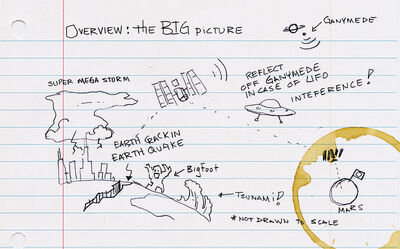 OVERVIEW: the BIG picture
GANYMEDE
SUPER MEGA STORM
REFLECT
OFF GANYMEDE
IN CASE OF UFO
INTEFERENCE!
EARTH CRACKIN
EARTH QUAKE
BIGFOOT
TSUNAMI!
MARS
*NOT DRAWN to SCALE